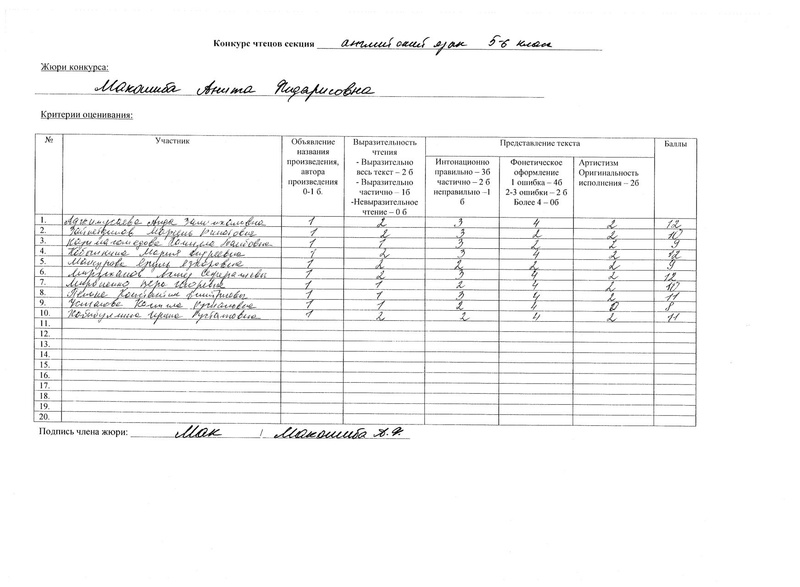 Конкурс чтецов секция английский язык 5-6 класс
Жюри конкурса:
Макошиба Анита
Критерии оценивания:
№ Участник Объявление названия произведения, автора произведения 0-1 б. Выразительность чтения - Выразительно весь текст – 2 б - Выразительно частично – 1б -Невыразительное чтение – 0 б Представление текста Баллы
Интонационно правильно – 3б частично – 2 б неправильно –1 б Фонетическое оформление 1 ошибка – 4б 2-3 ошибки – 2 б Более 4 – 0б Артистизм Оригинальность исполнения – 2б
1. Аида 1 2 3 4 2 12
2. Марсель Ринатовна 1 2 3 2 2 10
3. Камилла 1 1 3 2 2 9
4. Мария 1 2 3 4 2 12
5. 1 2 2 2 2 9
6. 1 2 3 4 2 12
7. Мироненко Вера Игоревна 1 1 2 4 2 10
8. Константин 1 1 3 4 2 11
9. Камилла Руслановна 1 1 2 4 0 8
10. Ирина Рустамовна 1 2 2 4 2 11
11.
12.
13.
14.
15.
16.
17.
18.
19.
20.
Подпись члена жюри: Мак / Макошиба А.